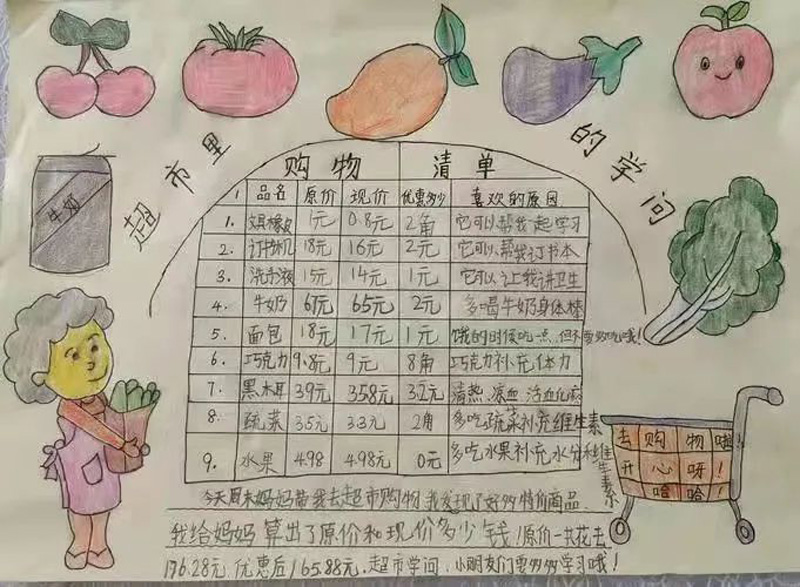 超市里的学问
牛奶
购物清单
品名 原价 现价 优惠多少 喜欢的原因
1. 文具橡皮 1元 0.8元 2角 它可以帮我一起学习
2. 订书机 18元 16元 2元 它可以帮我订书本
3. 洗手液 15元 14元 1元 它可以让我讲卫生
4. 牛奶 67元 65元 2元 多喝牛奶身体棒
5. 面包 18元 17元 1元 饿的时候吃一点,但不要多吃哦!
6. 巧克力 9.8元 9元 8角 巧克力补充体力
7. 黑木耳 39元 35.8元 3.2元 清热、凉血、活血化瘀
8. 蔬菜 3.5元 3.3元 2角 多吃蔬菜补充维生素
9. 水果 4.98 4.98元 0元 多吃水果补充水分和维生素
去购物啦!
开心呀!
哈哈!
今天周末妈妈带我去超市购物,我发现了好多特价商品.
我给妈妈算出了原价和现价多少钱!原价一共花去
176.28元,优惠后165.88元.超市学问,小朋友们要多多学习哦!